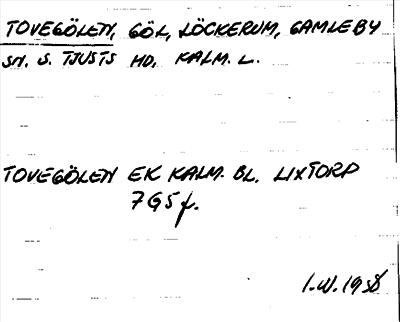 TOVEGÖLEN, GÖL, LÖCKERUM, GAMLEBY
SN. S. TJUSTS HD. KALM. L.
TOVEGÖLEN EK KALM. BL. LIXTORP
7G5f.
I.W. 1958